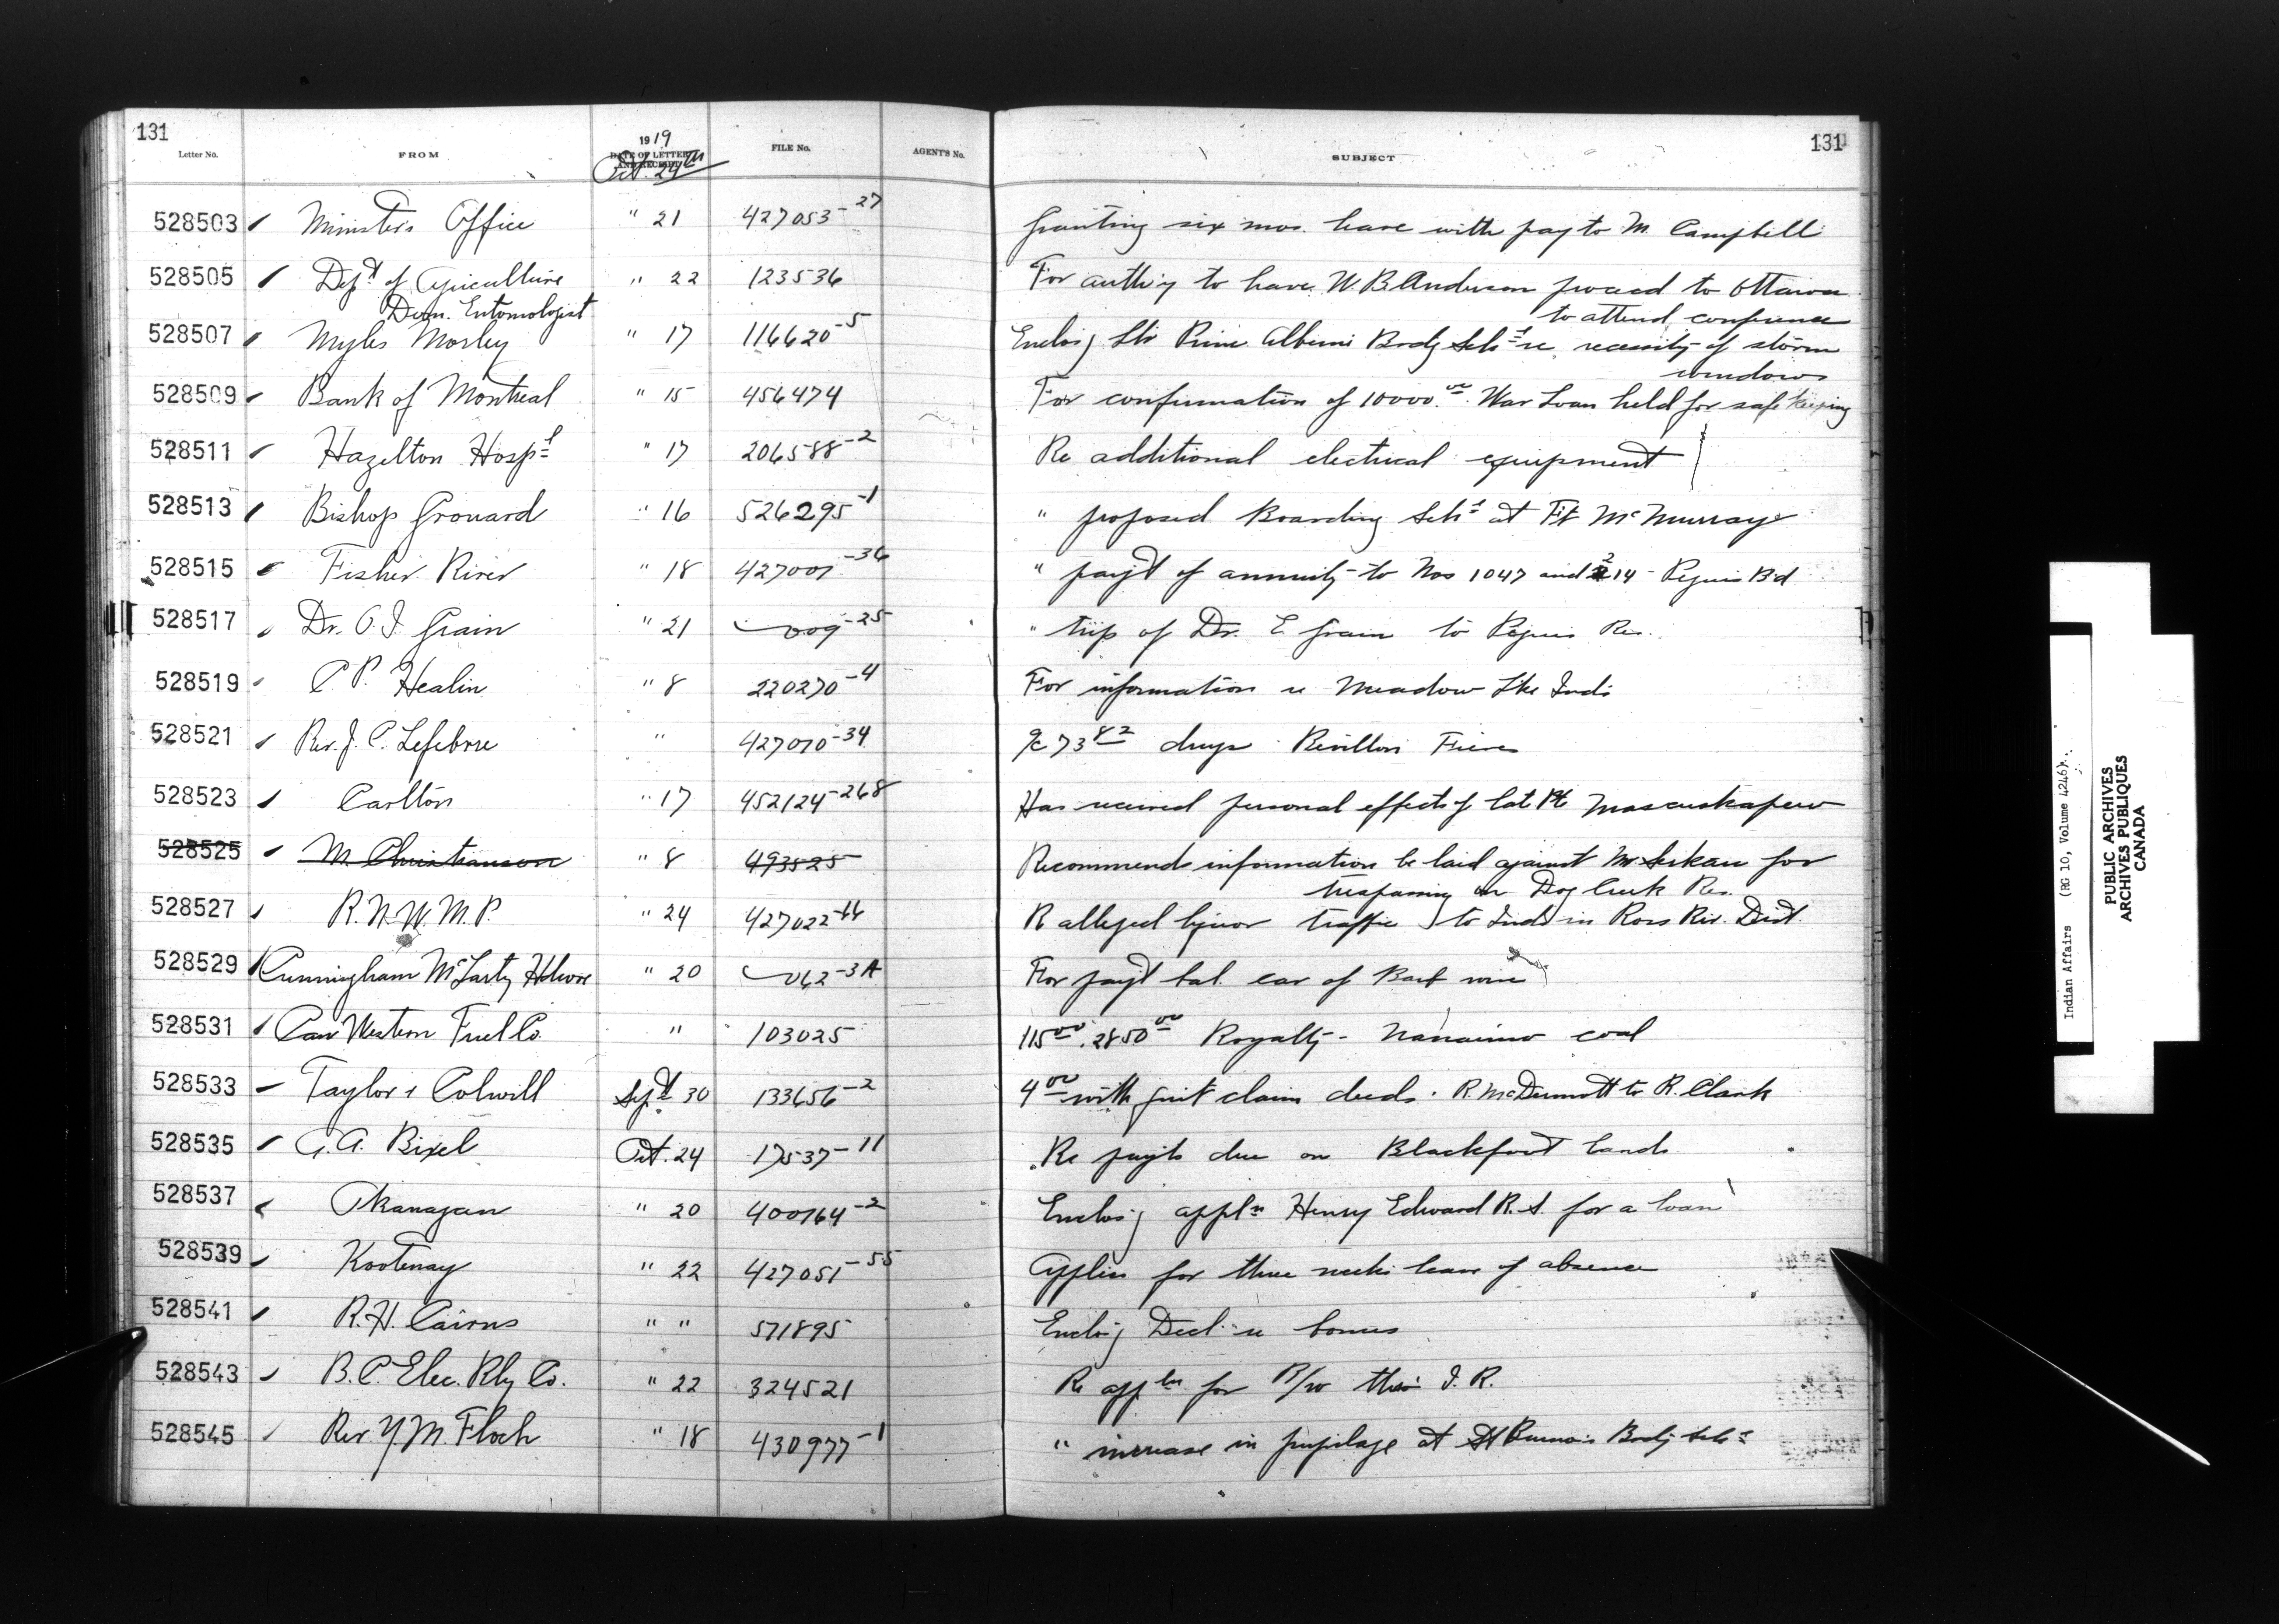 131
131
Letter No. FROM 1919 DATE OF LETTER AND RECEIPT FILE No. AGENT'S No. SUBJECT
Oct. 24th
528503 Minister's Office " 21 427053-27 Granting six mos. leave with pay to M. Campbell
528505 Dept of Agriculture " 22 123536 For authy to have W. B. Anderson proceed to Ottawa
Dom. Entomologist to attend conference
528507 Myles Morley " 17 116620-5 Enclosg ltr Prine Alberni Brdg Schl re necessity of storm
windows
528509 Bank of Montreal " 15 456474 For confirmation of 10000.00 War Loan held for safe keeping
528511 Hazelton Hospl " 17 206588-2 Re additional electrical equipment
528513 Bishop Grouard " 16 526295-1 " proposed Boarding Schl at Ft McMurray
528515 Fisher River " 18 427001-36 " payt of annuity to Nos 1047 and 214 - Peguis Bd
528517 Dr. O. I. Grain " 21 009-25 " trip of Dr. E. Grain to Peguis Res.
528519 C. P. Healin " 8 220270-4 For information re Meadow Lke Inds
528521 Rev. J. C. Lefebvre " 427010-34 a/c 73 82 drugs Revillon Freres
528523 Carlton " 17 452124-268 Has received personal effects of late Pte Mascuskapew
528525 M. Christianson " 8 493525 Recommends information be laid against Mr for
trespassing on Dog Creek Res.
528527 R. N. W. M. P. " 24 427022-66 R alleged liquor traffic to Inds in Ross Riv. Dist.
528529 Cunningham McLarty Hdwre " 20 062-3A For payt bal. car of Barb wire
528531 Can Western Fuel Co. " 103025 115 00. 2850 00 Royalty - Nanaimo coal
528533 Taylor & Colwill Sept 30 133656-2 4 00 with quit claim deeds. R. McDermott to R. Clark
528535 G. A. Bixel Oct. 24 17537-11 Re payts due on Blackfoot Lands
528537 Okanagan " 20 400164-2 Enclosg appln Henry Edward R. S. for a loan
528539 Kootenay " 22 427051-55 Applies for three weeks leave of absence
528541 R. H. Cairns " " 571895 Enclosg Decl. re bonus
528543 B. C. Elec. Rly Co. " 22 324521 Re appln for R/w thro' I. R.
528545 Rev. Y. M. Floch " 18 430977-1 " increase in pupilage at St Bruno's Brdg Schl
Indian Affairs (RG 10, Volume 4246)
PUBLIC ARCHIVES
ARCHIVES PUBLIQUES
CANADA